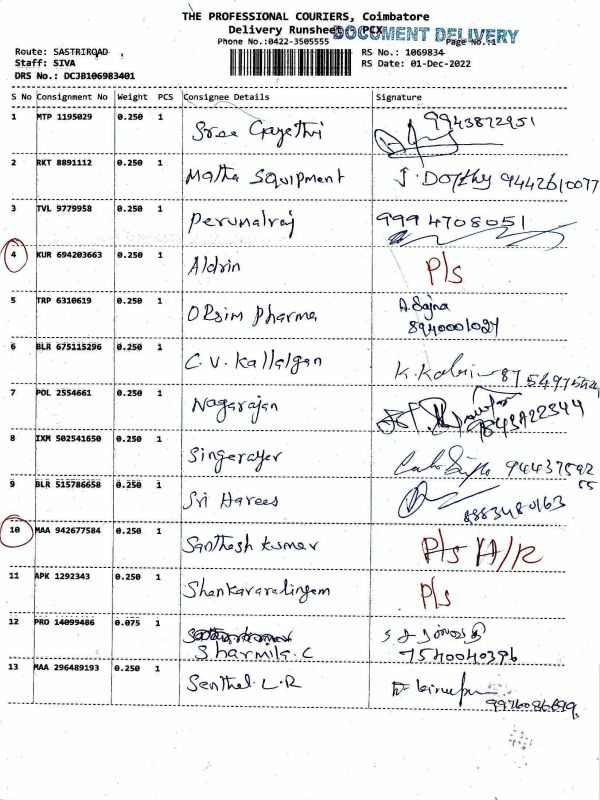 THE PROFESSIONAL COURIERS, Coimbatore
Delivery Runsheet PCX
DOCUMENT DELIVERY
Phone No.:0422-3505555 Page No.:1
Route: SASTRIROAD RS No.: 1069834
Staff: SIVA RS Date: 01-Dec-2022
DRS No.: DCJB106983401
S No Consignment No Weight PCS Consignee Details Signature
1 MTP 1195029 0.250 1 Sree Gayethri 9943872951
2 RKT 8891112 0.250 1 Matha Squipment J. Dorthy 9442610077
3 TVL 9779958 0.250 1 Perumalraj 9994708051
4 KUR 694203663 0.250 1 Aldrin P/s
5 TRP 6310619 0.250 1 ORsim Pharma A. Sajna
8940001027
6 BLR 675115296 0.250 1 C.V. Kallalgan K.
7 POL 2554661 0.250 1 Nagarajan
8 IXM 502541650 0.250 1 Singerayer 94437592
55
9 BLR 515786658 0.250 1 Sri Harees
8883480163
10 MAA 942677584 0.250 1 Santhosh kumar P/s H/R
11 APK 1292343 0.250 1 Shankaravalingam P/s
12 PRO 14099486 0.075 1
Sharmila. C 7540040396
13 MAA 296489193 0.250 1 Senthel. L. R